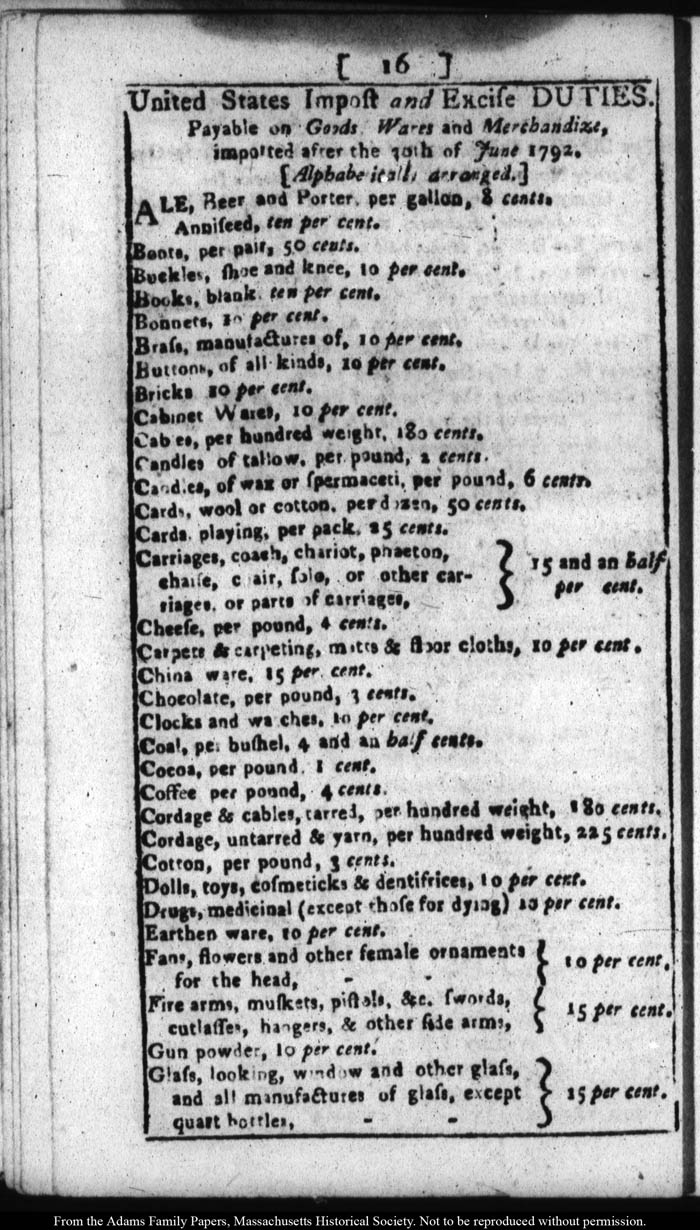 [ 16 ]
United States Impoſt and Exciſe DUTIES.
Payable on Goods Wares and Merchandize,
imported after the 30th of June 1792.
[Alphabetically arranged.]
ALE, Beer and Porter, per gallon, 8 cents.
Anniſeed, ten per cent.
Boots, per pair, 50 cents.
Buckles, ſhoe and knee, 10 per cent.
Books, blank, ten per cent.
Bonnets, 10 per cent.
Braſs, manufactures of, 10 per cent.
Buttons, of all kinds, 10 per cent.
Bricks 10 per cent.
Cabinet Wares, 10 per cent.
Cables, per hundred weight, 180 cents.
Candles of tallow, per pound, 2 cents.
Candles, of wax or ſpermaceti, per pound, 6 cents.
Cards, wool or cotton, per dozen, 50 cents.
Cards, playing, per pack, 25 cents.
Carriages, coach, chariot, phaeton,
chaiſe, chair, ſolo, or other car- } 15 and an half
riages, or parts of carriages, per cent.
Cheeſe, per pound, 4 cents.
Carpets & carpeting, matts & floor cloths, 10 per cent.
China ware, 15 per cent.
Chocolate, per pound, 3 cents.
Clocks and watches, 10 per cent.
Coal, per buſhel, 4 and an half cents.
Cocoa, per pound, 1 cent.
Coffee per pound, 4 cents.
Cordage & cables, tarred, per hundred weight, 180 cents.
Cordage, untarred & yarn, per hundred weight, 225 cents.
Cotton, per pound, 3 cents.
Dolls, toys, coſmeticks & dentifrices, 10 per cent.
Drugs, medicinal (except thoſe for dying) 10 per cent.
Earthen ware, 10 per cent.
Fans, flowers and other female ornaments } 10 per cent.
for the head, - -
Fire arms, muſkets, piſtols, &c. ſwords, } 15 per cent.
cutlaſſes, hangers, & other ſide arms,
Gun powder, 10 per cent.
Glaſs, looking, window and other glaſs,
and all manufactures of glaſs, except } 15 per cent.
quart bottles, - -
From the Adams Family Papers, Massachusetts Historical Society. Not to be reproduced without permission.